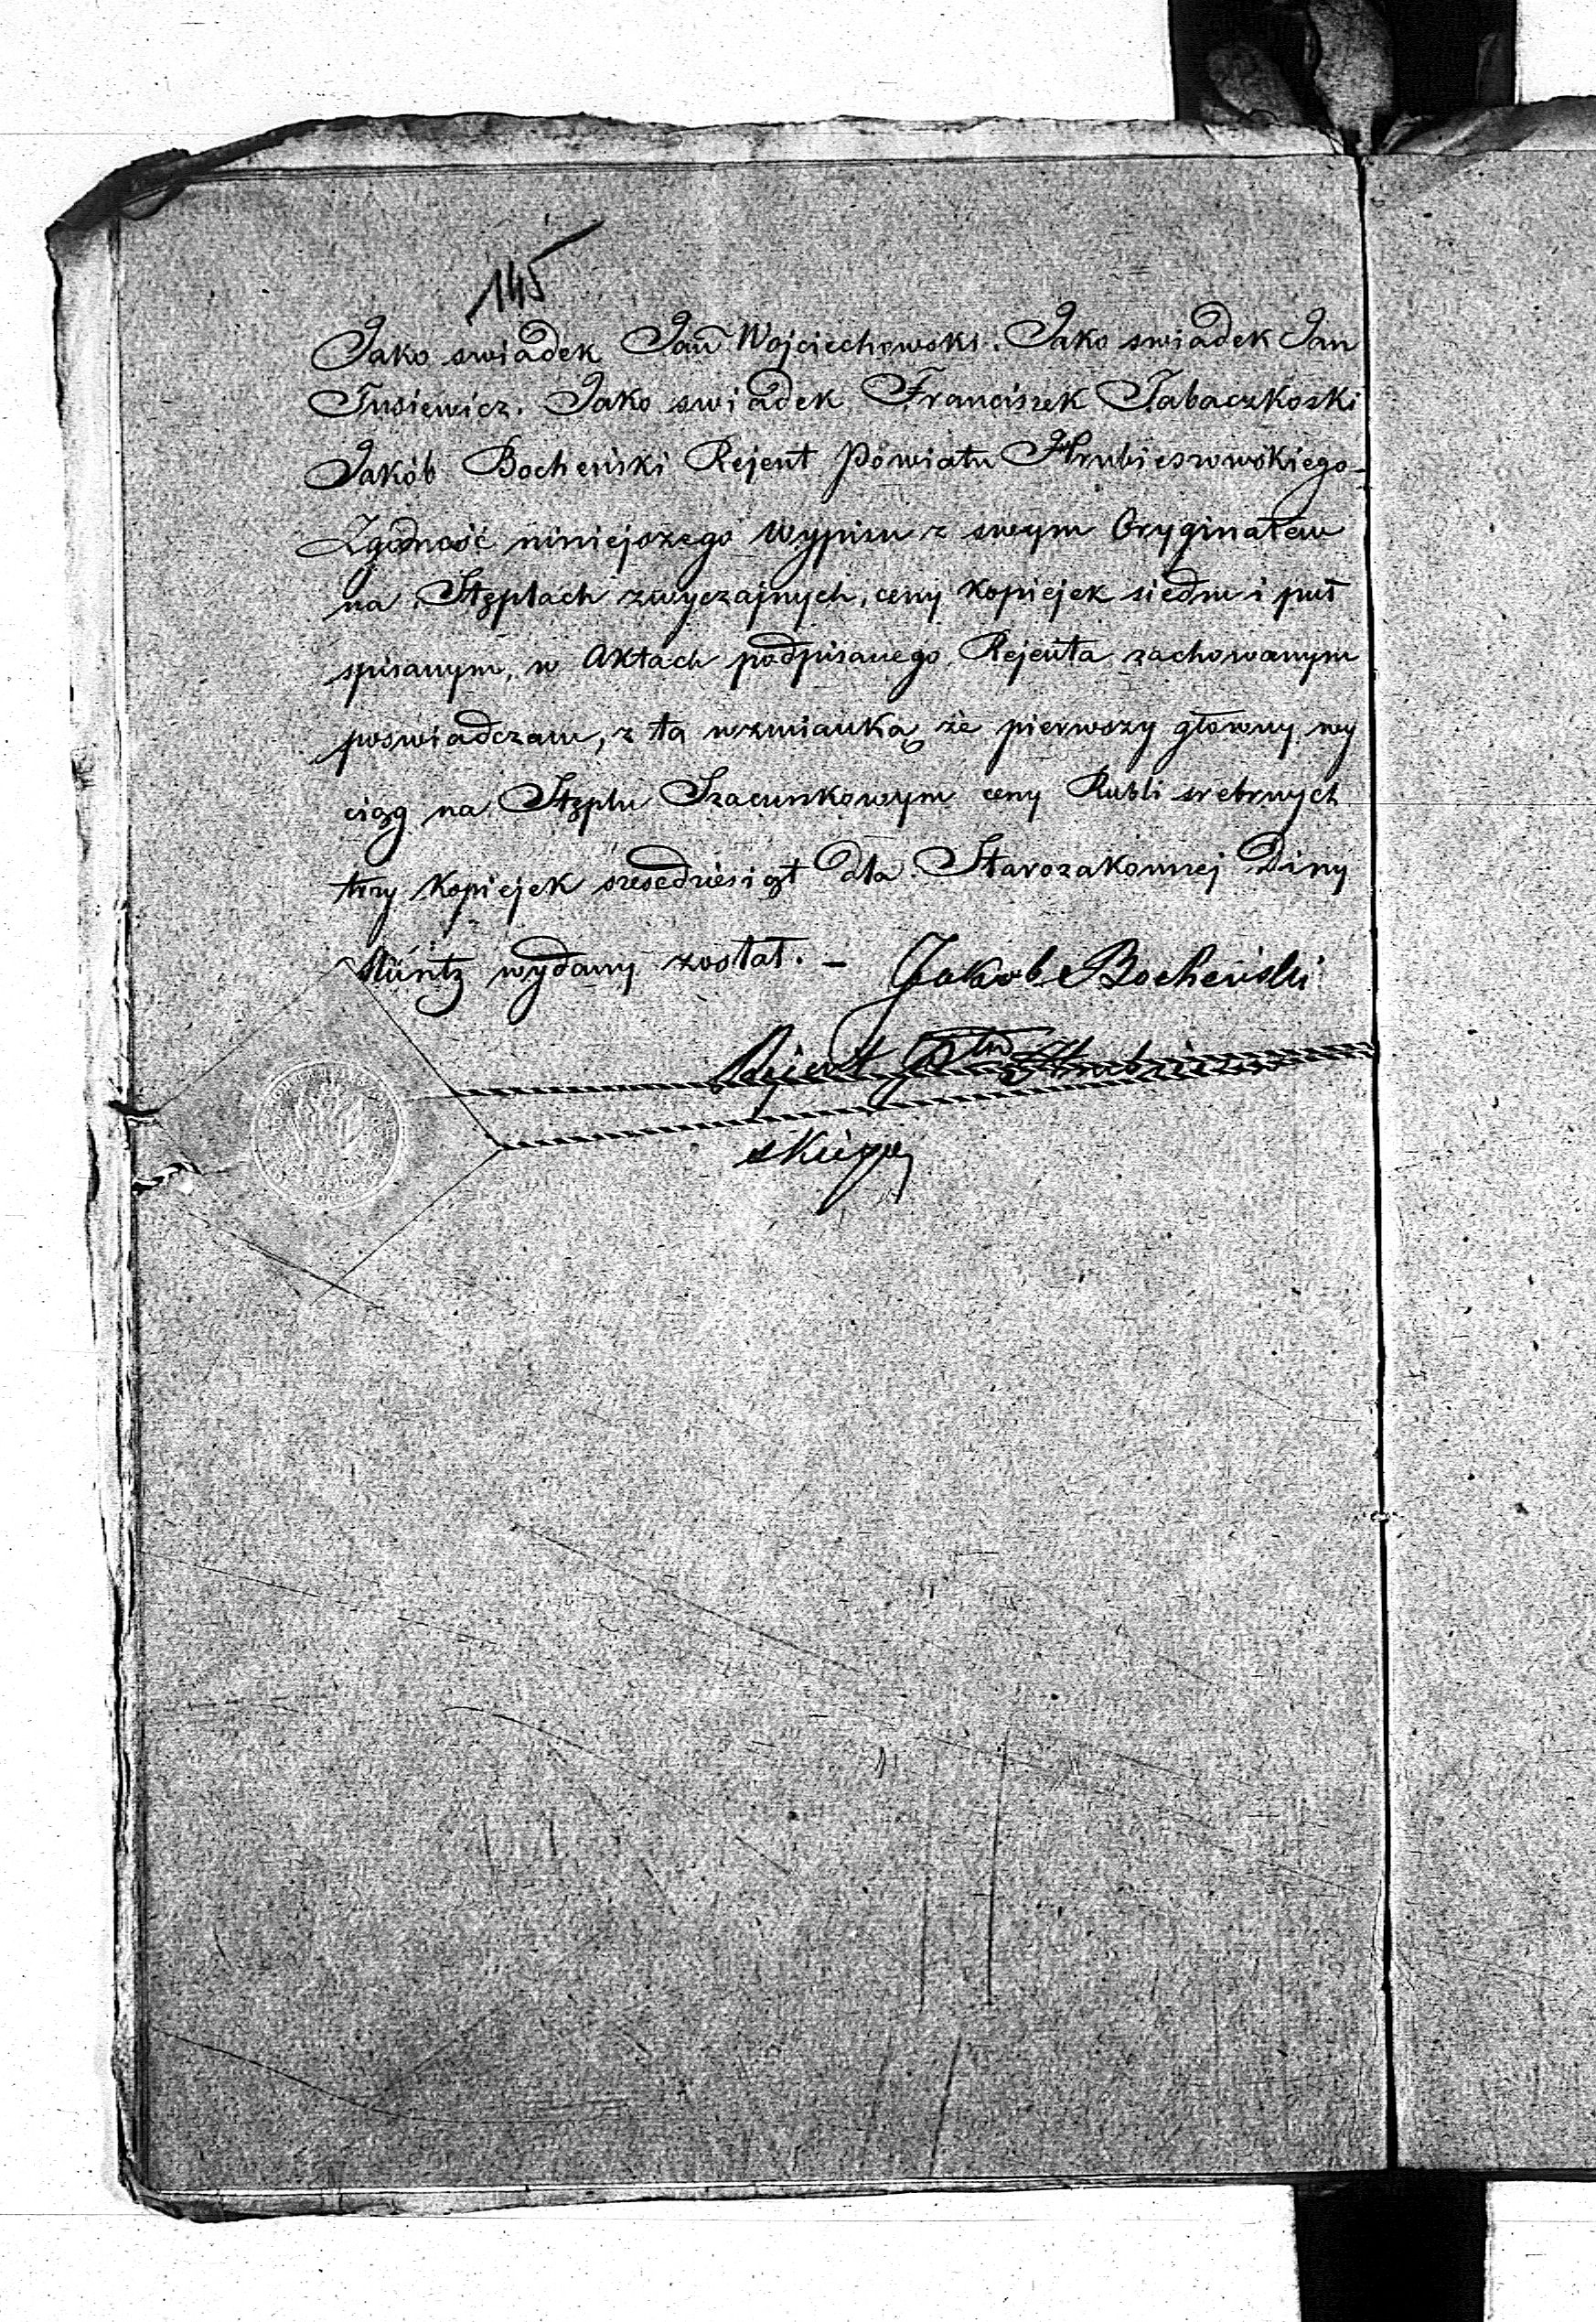 145
Jako swiadek Jan Wojciechowski. Jako swiadek Jan
Tusiewicz. Jako swiadek Franciszek Tabaczkoski
Jakób Bocheński Rejent Powiatu Hrubieszowskiego –
Zgodność niniejszego Wypisu z swym Oryginałem
na Stęplach zwyczajnych, ceny Kopiejek siedm i puł
spisanym, w Aktach podpisanego Rejenta zachowanym
poswiadczam, z tą wzmianką że pierwszy główny wy
ciąg na Stęplu Szacunkowym ceny Rubli srebrnych
trzy Kopiejek szesedziesiąt dla Starozakonnej Diny
Müntz wydany został. – Jakob Bocheński
Rejent Ptu Hrubieszow
skiego